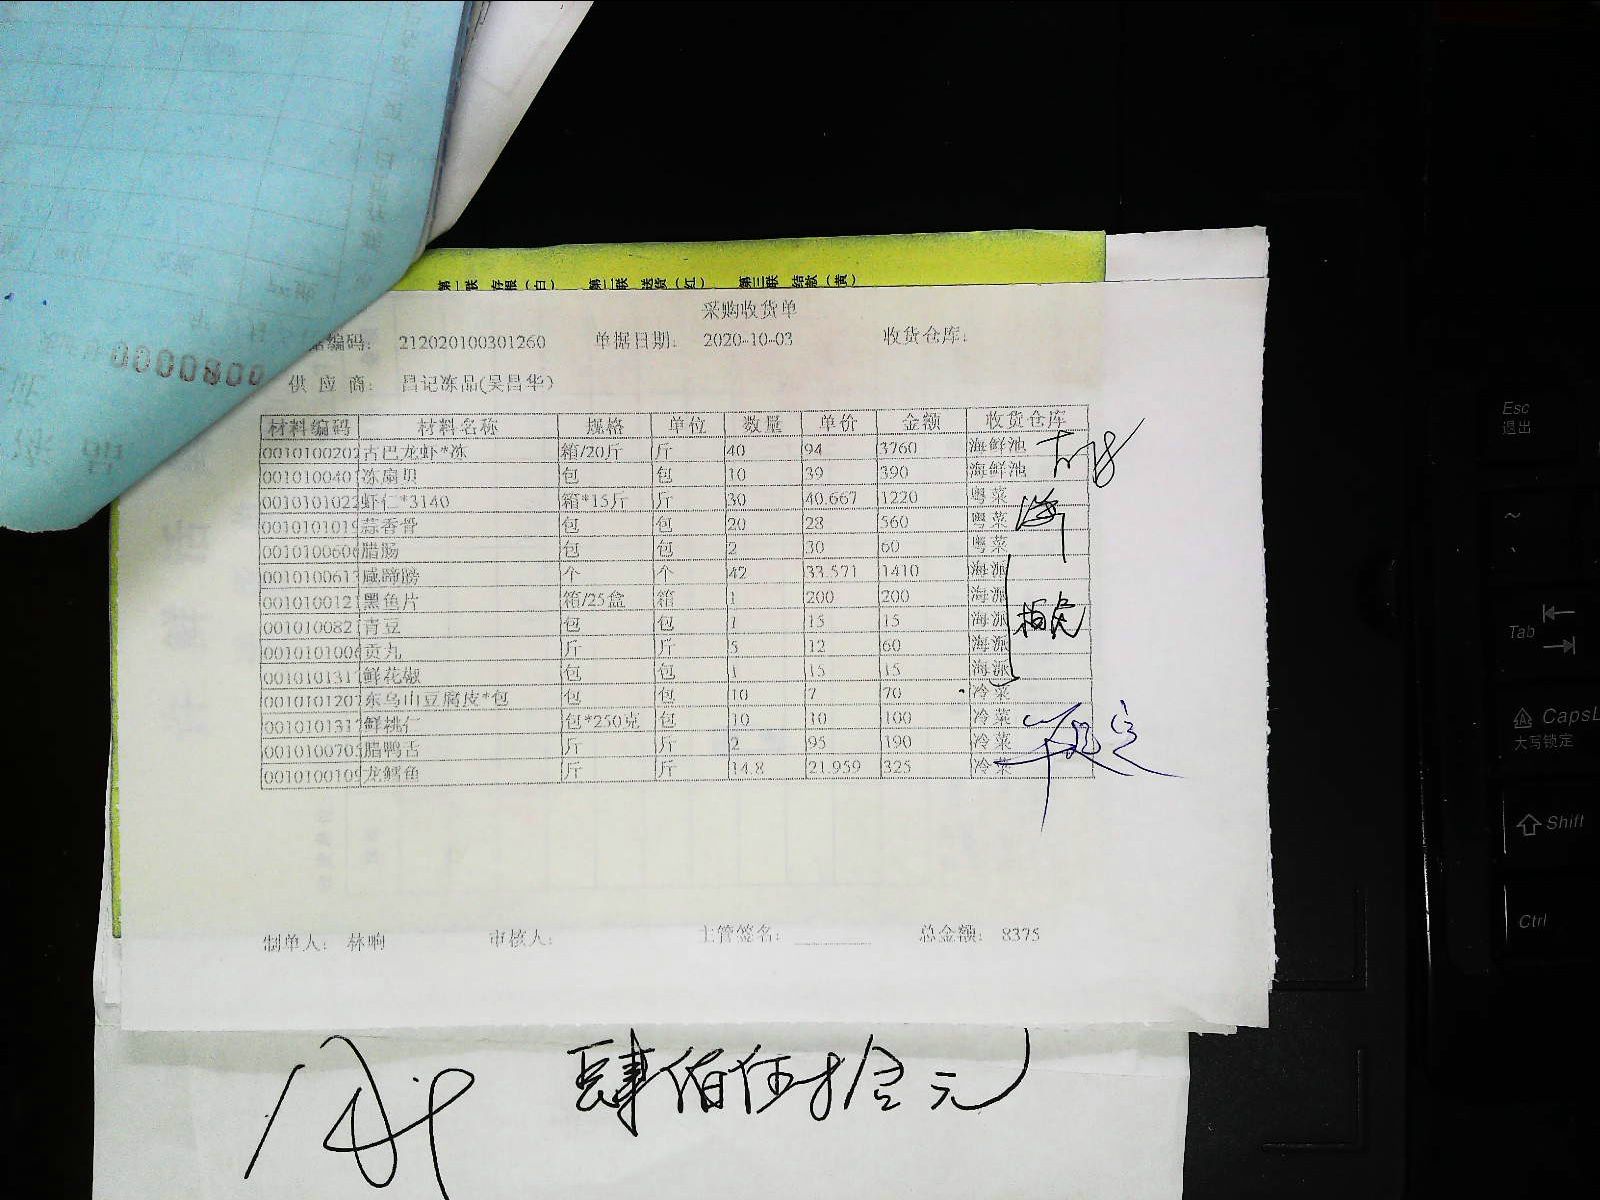 第一联 存根（白） 第二联 送货（红） 第三联 结款（黄）
采购收货单
编码： 212020100301260 单据日期： 2020-10-03 收货仓库：
供 应 商： 昌记冻品(吴昌华)
材料编码 材料名称 规格 单位 数量 单价 金额 收货仓库
0010100202 古巴龙虾*冻 箱/20斤 斤 40 94 3760 海鲜池
001010040 冻扇贝 包 包 10 39 390 海鲜池
0010101022 虾仁*3140 箱*15斤 斤 30 40.667 1220 粤菜
0010101019 蒜香骨 包 包 20 28 560 粤菜
001010060 腊肠 包 包 2 30 60 粤菜
001010061 咸蹄膀 个 个 42 33.571 1410 海派
001010012 黑鱼片 箱/25盒 箱 1 200 200 海派
001010082 青豆 包 包 1 15 15 海派
001010100 贡丸 斤 斤 5 12 60 海派
001010131 鲜花椒 包 包 1 15 15 海派
001010120 东乌山豆腐皮*包 包 包 10 7 70 冷菜
001010131 鲜桃仁 包*250克 包 10 10 100 冷菜
001010070 腊鸭舌 斤 斤 2 95 190 冷菜
001010010 龙鳕鱼 斤 斤 14.8 21.959 325 冷菜
制单人： 林响 审核人： 主管签名： 总金额： 8375
肆佰伍拾元
0080000
Esc
退出
Tab
CapsL
大写锁定
Shift
Ctrl